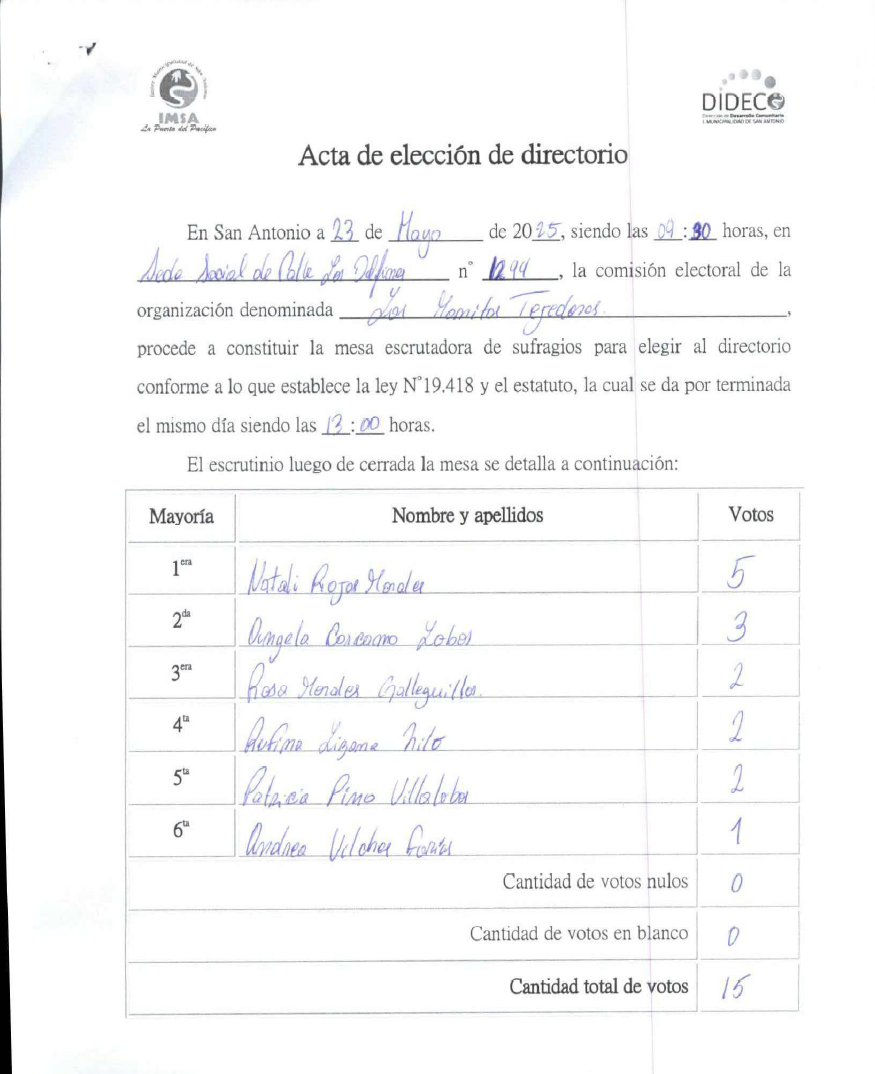 IMSA
La Puerta del Pacífico
DIDECO
Dirección de Desarrollo Comunitario
I. MUNICIPALIDAD DE SAN ANTONIO
Acta de elección de directorio
En San Antonio a 23 de Mayo de 2025, siendo las 09:30 horas, en
Sede Social de Calle Los n° 1294, la comisión electoral de la
organización denominada Las Manitos Tejedoras,
procede a constituir la mesa escrutadora de sufragios para elegir al directorio
conforme a lo que establece la ley N°19.418 y el estatuto, la cual se da por terminada
el mismo día siendo las 13:00 horas.
El escrutinio luego de cerrada la mesa se detalla a continuación:
Mayoría Nombre y apellidos Votos
1era Natali Rojas Morales 5
2da Angela Carcamo Lobos 3
3era Rosa Morales Galleguillos. 2
4ta Rufina Lizama 2
5ta Patricia Pino Villalobos 2
6ta Andrea Vilches 1
Cantidad de votos nulos 0
Cantidad de votos en blanco 0
Cantidad total de votos 15